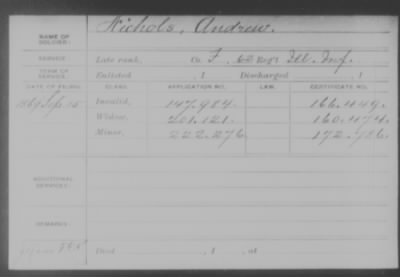 NAME OF SOLDIER: Nichols, Andrew.
SERVICE: Late rank, Co. F, 62 Reg't Ill. Inf.
TERM OF SERVICE: Enlisted , 1 Discharged , 1
DATE OF FILING. CLASS. APPLICATION NO. LAW. CERTIFICATE NO.
1869 Sep 15 Invalid, 147.984. 166.449.
Widow, 201.121. 160.474.
Minor, 222.276. 172.986.
ADDITIONAL SERVICES:
REMARKS:
Died , 1 , at